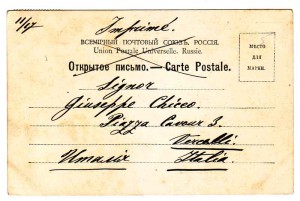 11/97
Imprimé.
ВСЕМІРНЫЙ ПОЧТОВЫЙ СОЮЗЪ. РОССІЯ.
Union Postale Universelle. Russie.
Открытое письмо. — Carte Postale.
МѢСТО
ДЛЯ
МАРКИ.
Signor
Giuseppe Chicco.
Piazza Cavour 3
Vercelli
Италія Italia